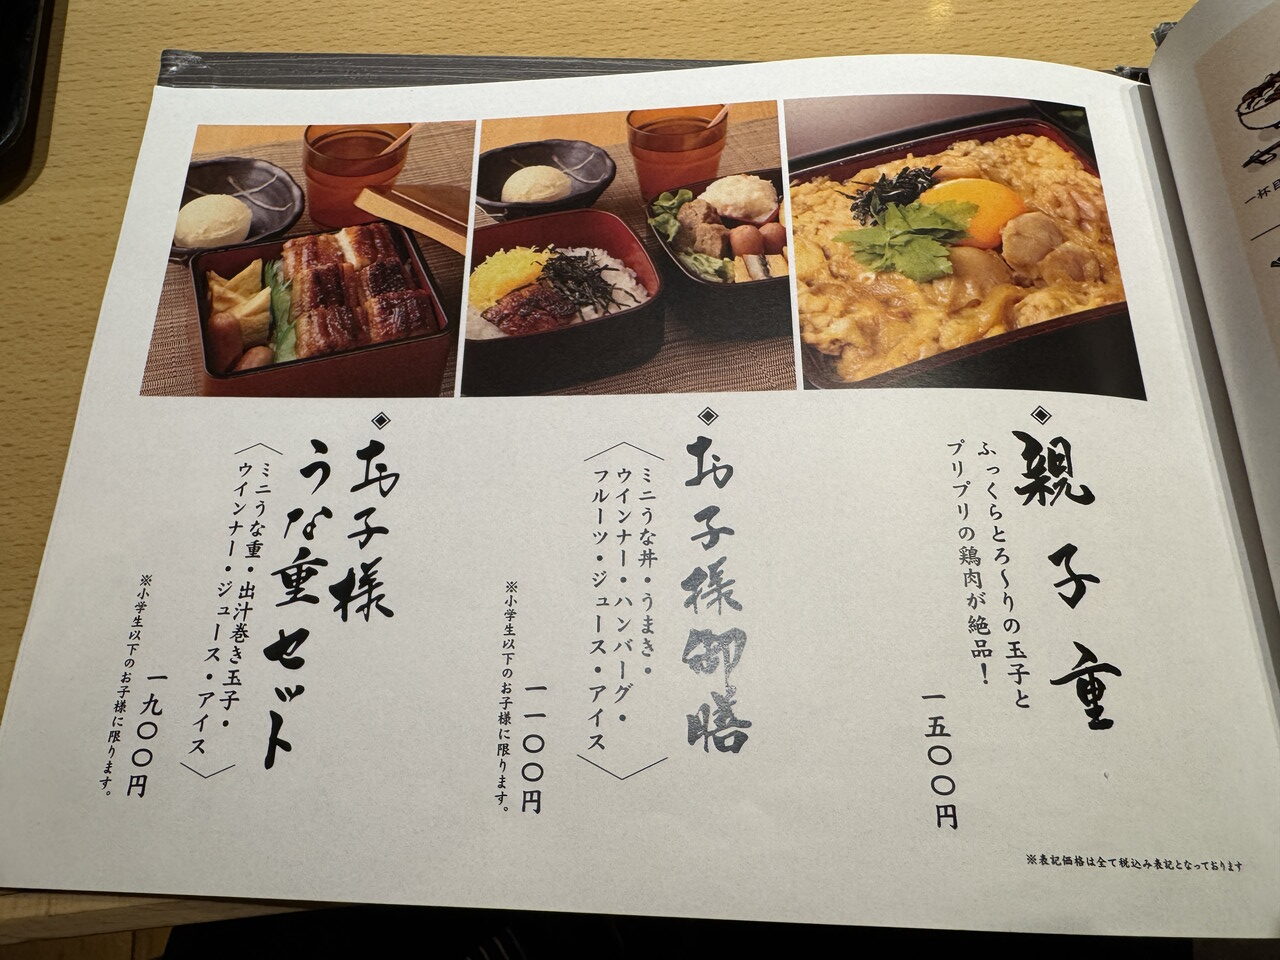 親子重
ふっくらとろ〜りの玉子と
プリプリの鶏肉が絶品!
一五〇〇円
お子様御膳
ミニうな丼・うまき・
ウインナー・ハンバーグ・
フルーツ・ジュース・アイス
一一〇〇円
※小学生以下のお子様に限ります。
お子様
うな重セット
ミニうな重・出汁巻き玉子・
ウインナー・ジュース・アイス
一九〇〇円
※小学生以下のお子様に限ります。
※表記価格は全て税込み表記となっております
一杯目